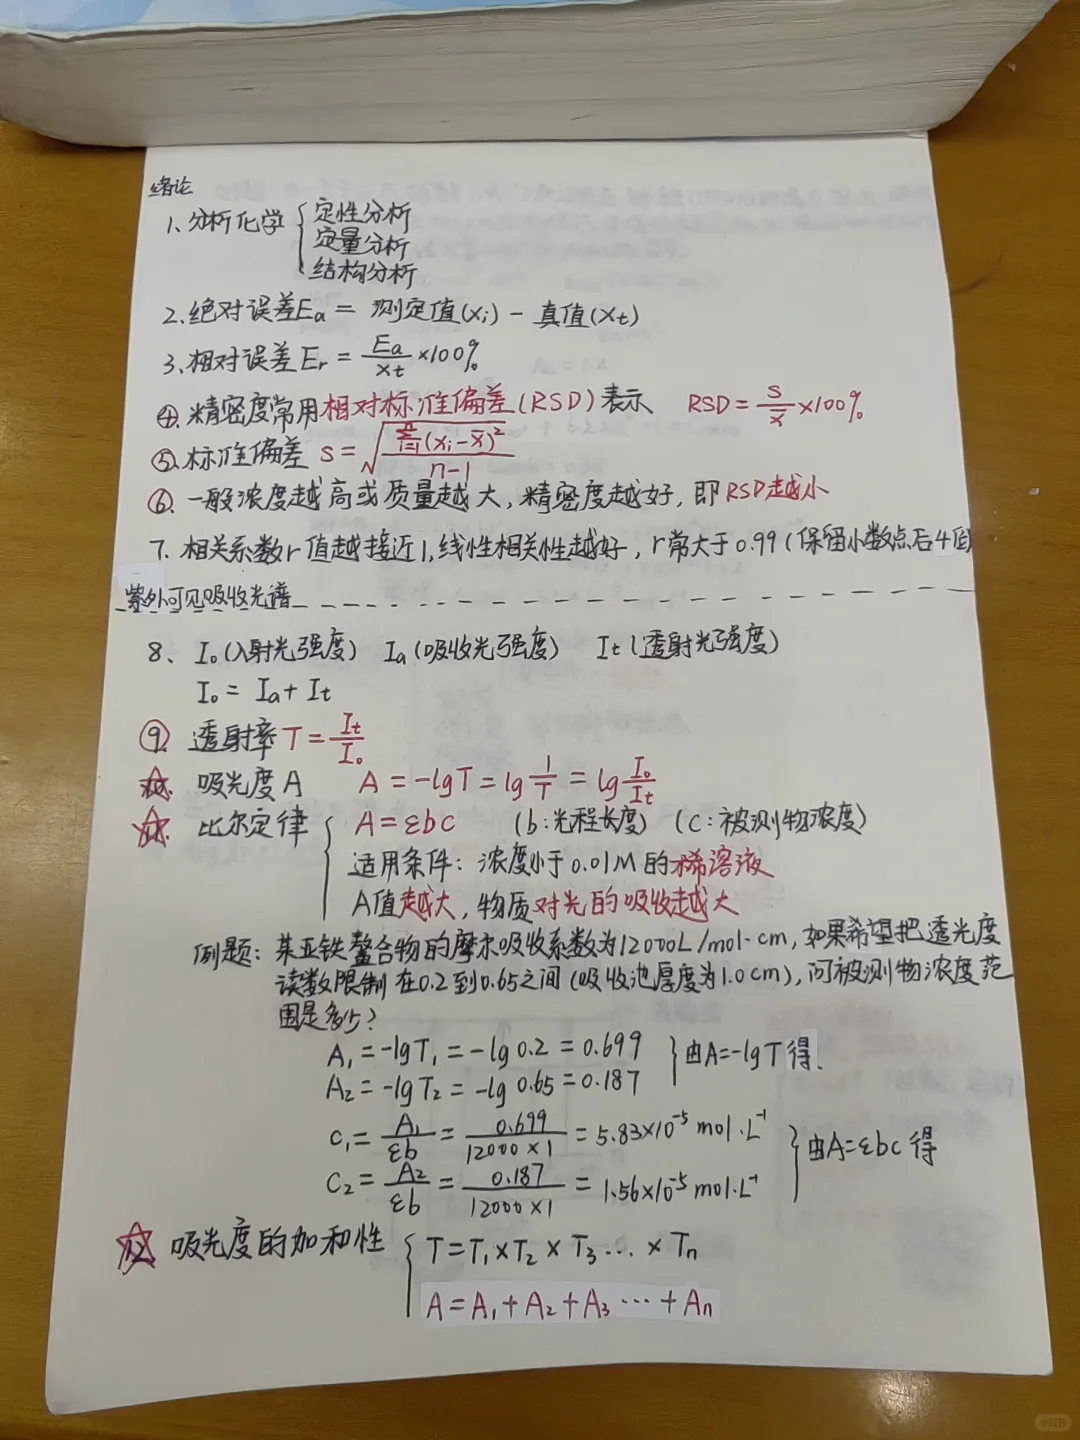 绪论
1、分析化学 { 定性分析
定量分析
结构分析
2、绝对误差Ea = 测定值(xi) - 真值(xt)
3、相对误差Er = Ea/xt ×100%
④、精密度常用相对标准偏差(RSD)表示 RSD = s/x̄ ×100%
⑤、标准偏差 s = √(Σ(i=1→n)(xi-x̄)²/(n-1))
⑥、一般浓度越高或质量越大,精密度越好,即RSD越小
7、相关系数r值越接近1,线性相关性越好,r常大于0.99(保留小数点后4位)
紫外可见吸收光谱
8、I₀(入射光强度) Ia(吸收光强度) It(透射光强度)
I₀ = Ia + It
⑨、透射率T = It/I₀
10、吸光度A A = -lgT = lg 1/T = lg I₀/It
11、比尔定律 { A = εbc (b:光程长度) (c:被测物浓度)
适用条件:浓度小于0.01M的稀溶液
A值越大,物质对光的吸收越大
例题:某亚铁螯合物的摩尔吸收系数为12000L/mol·cm,如果希望把透光度
读数限制在0.2到0.65之间(吸收池厚度为1.0cm),问被测物浓度范
围是多少?
A₁ = -lgT₁ = -lg0.2 = 0.699 } 由A=-lgT得.
A₂ = -lgT₂ = -lg0.65 = 0.187
c₁ = A₁/εb = 0.699/(12000×1) = 5.83×10⁻⁵ mol·L⁻¹ } 由A=εbc得
c₂ = A₂/εb = 0.187/(12000×1) = 1.56×10⁻⁵ mol·L⁻¹
12 吸光度的加和性 { T = T₁×T₂×T₃…×Tn
A = A₁+A₂+A₃…+An
小红书